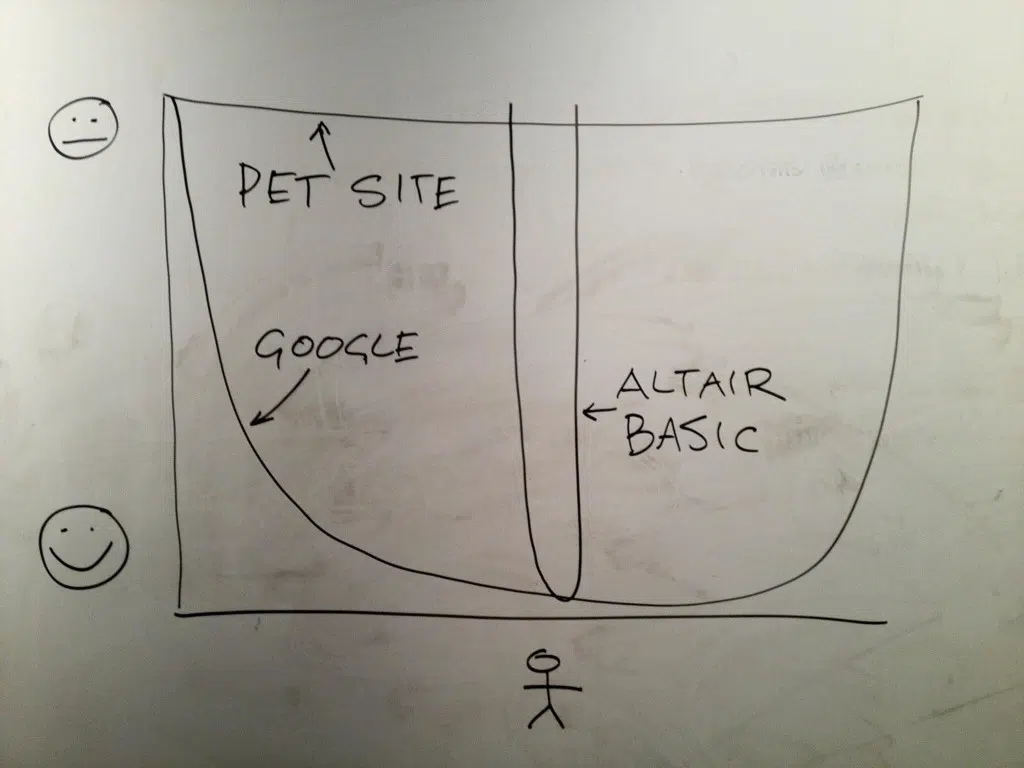 PET SITE
GOOGLE
ALTAIR
BASIC